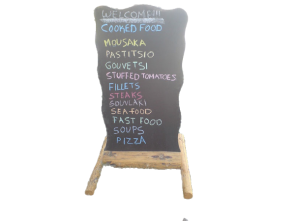 WELCOME!!!
COOKED FOOD
MOUSAKA
PASTITSIO
GOUVETSI
STUFFED TOMATOES
FILLETS
STEAKS
SOUVLAKI
SEAFOOD
FAST FOOD
SOUPS
PIZZA